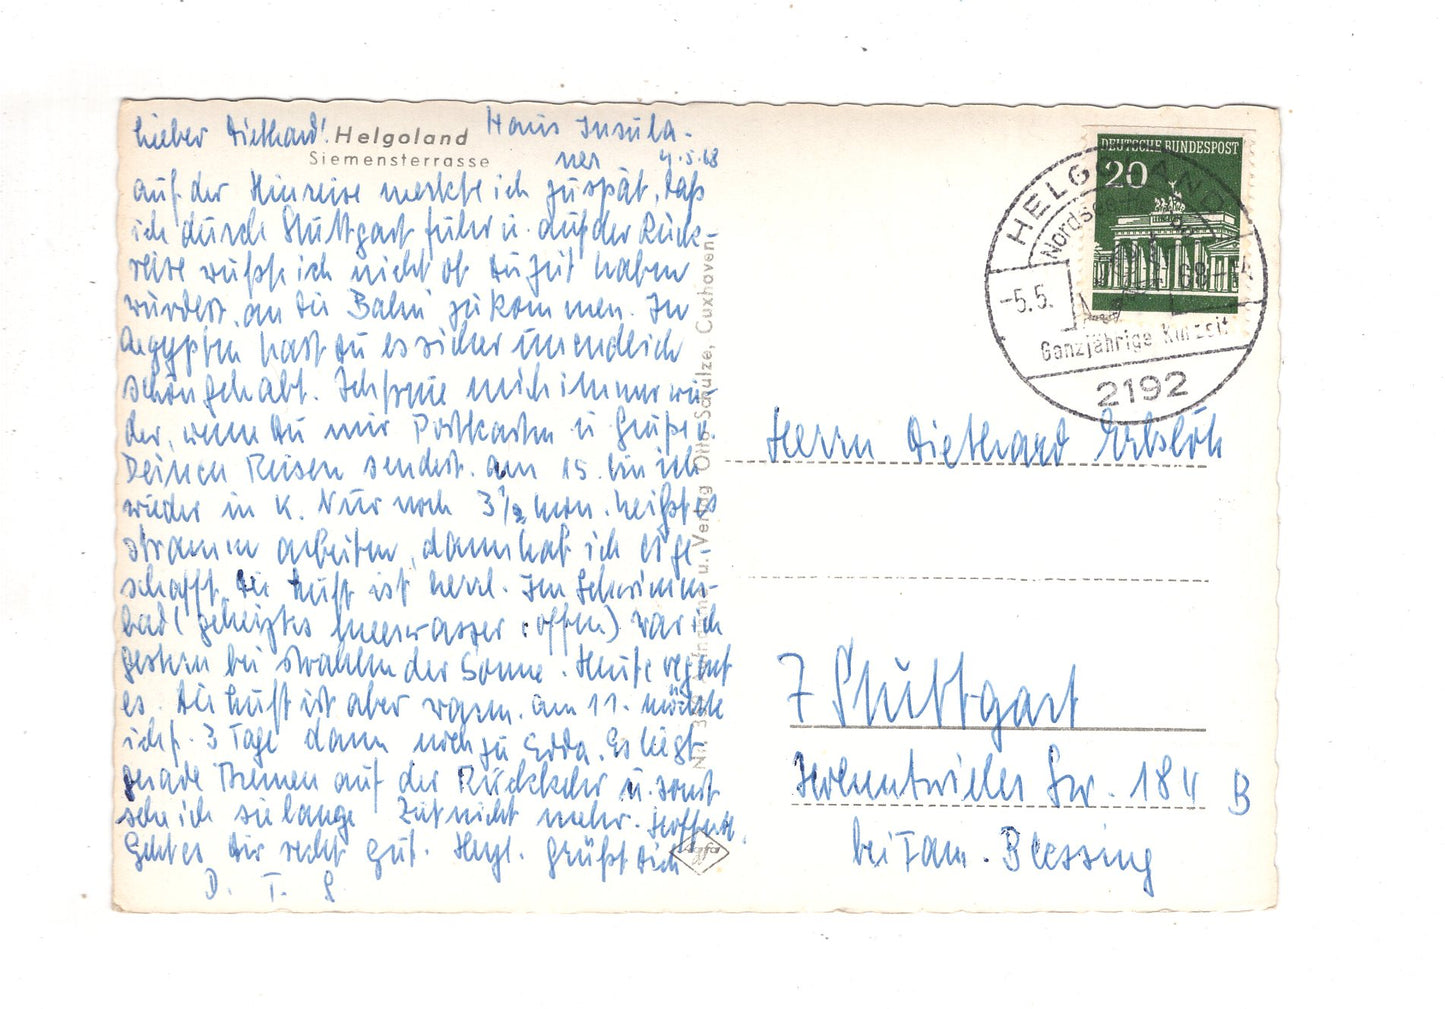 Lieber Diethard! Haus Insula-
ner 4.5.68
Helgoland
Siemensterrasse
auf der Hinreise merkte ich zu spät, daß
ich durch Stuttgart fuhr u. auf der Rück-
reise wußte ich nicht ob Du Zeit haben
würdest, an die Bahn zu kommen. In
Aegypten hast Du es sicher unendlich
schön gehabt. Ich freue mich immer wie-
der, wenn Du mir Postkarten u Grüße v.
Deinen Reisen sendest. am 15. bin ich
wieder in K. Nur noch 3 1/2 heißt es
stramm arbeiten, dann hab ich es ge-
schafft. Die Luft ist herrl. Im Schwimm-
bad (geheiztes Meerwasser : offen) war ich
gestern bei strahlender Sonne. Heute regnet
es. Die Luft ist aber warm. am 11. möchte
ich f. 3 Tage dann noch zu Edda. Es liegt
gerade Bremen auf der Rückkehr u. sonst
seh ich sie lange Zeit nicht mehr. Hoffentl.
Geht es Dir recht gut. Herzl. grüßt Dich
D. T. E
u. Verlag Otto Schulze, Cuxhaven
Agfa
DEUTSCHE BUNDESPOST
20
HELGOLAND
-5.5.68
Ganzjährige Kurzeit
2192
Herrn Diethard Erbslöh
7 Stuttgart
Hohentwieler Str. 184 B
bei Fam. Blessing